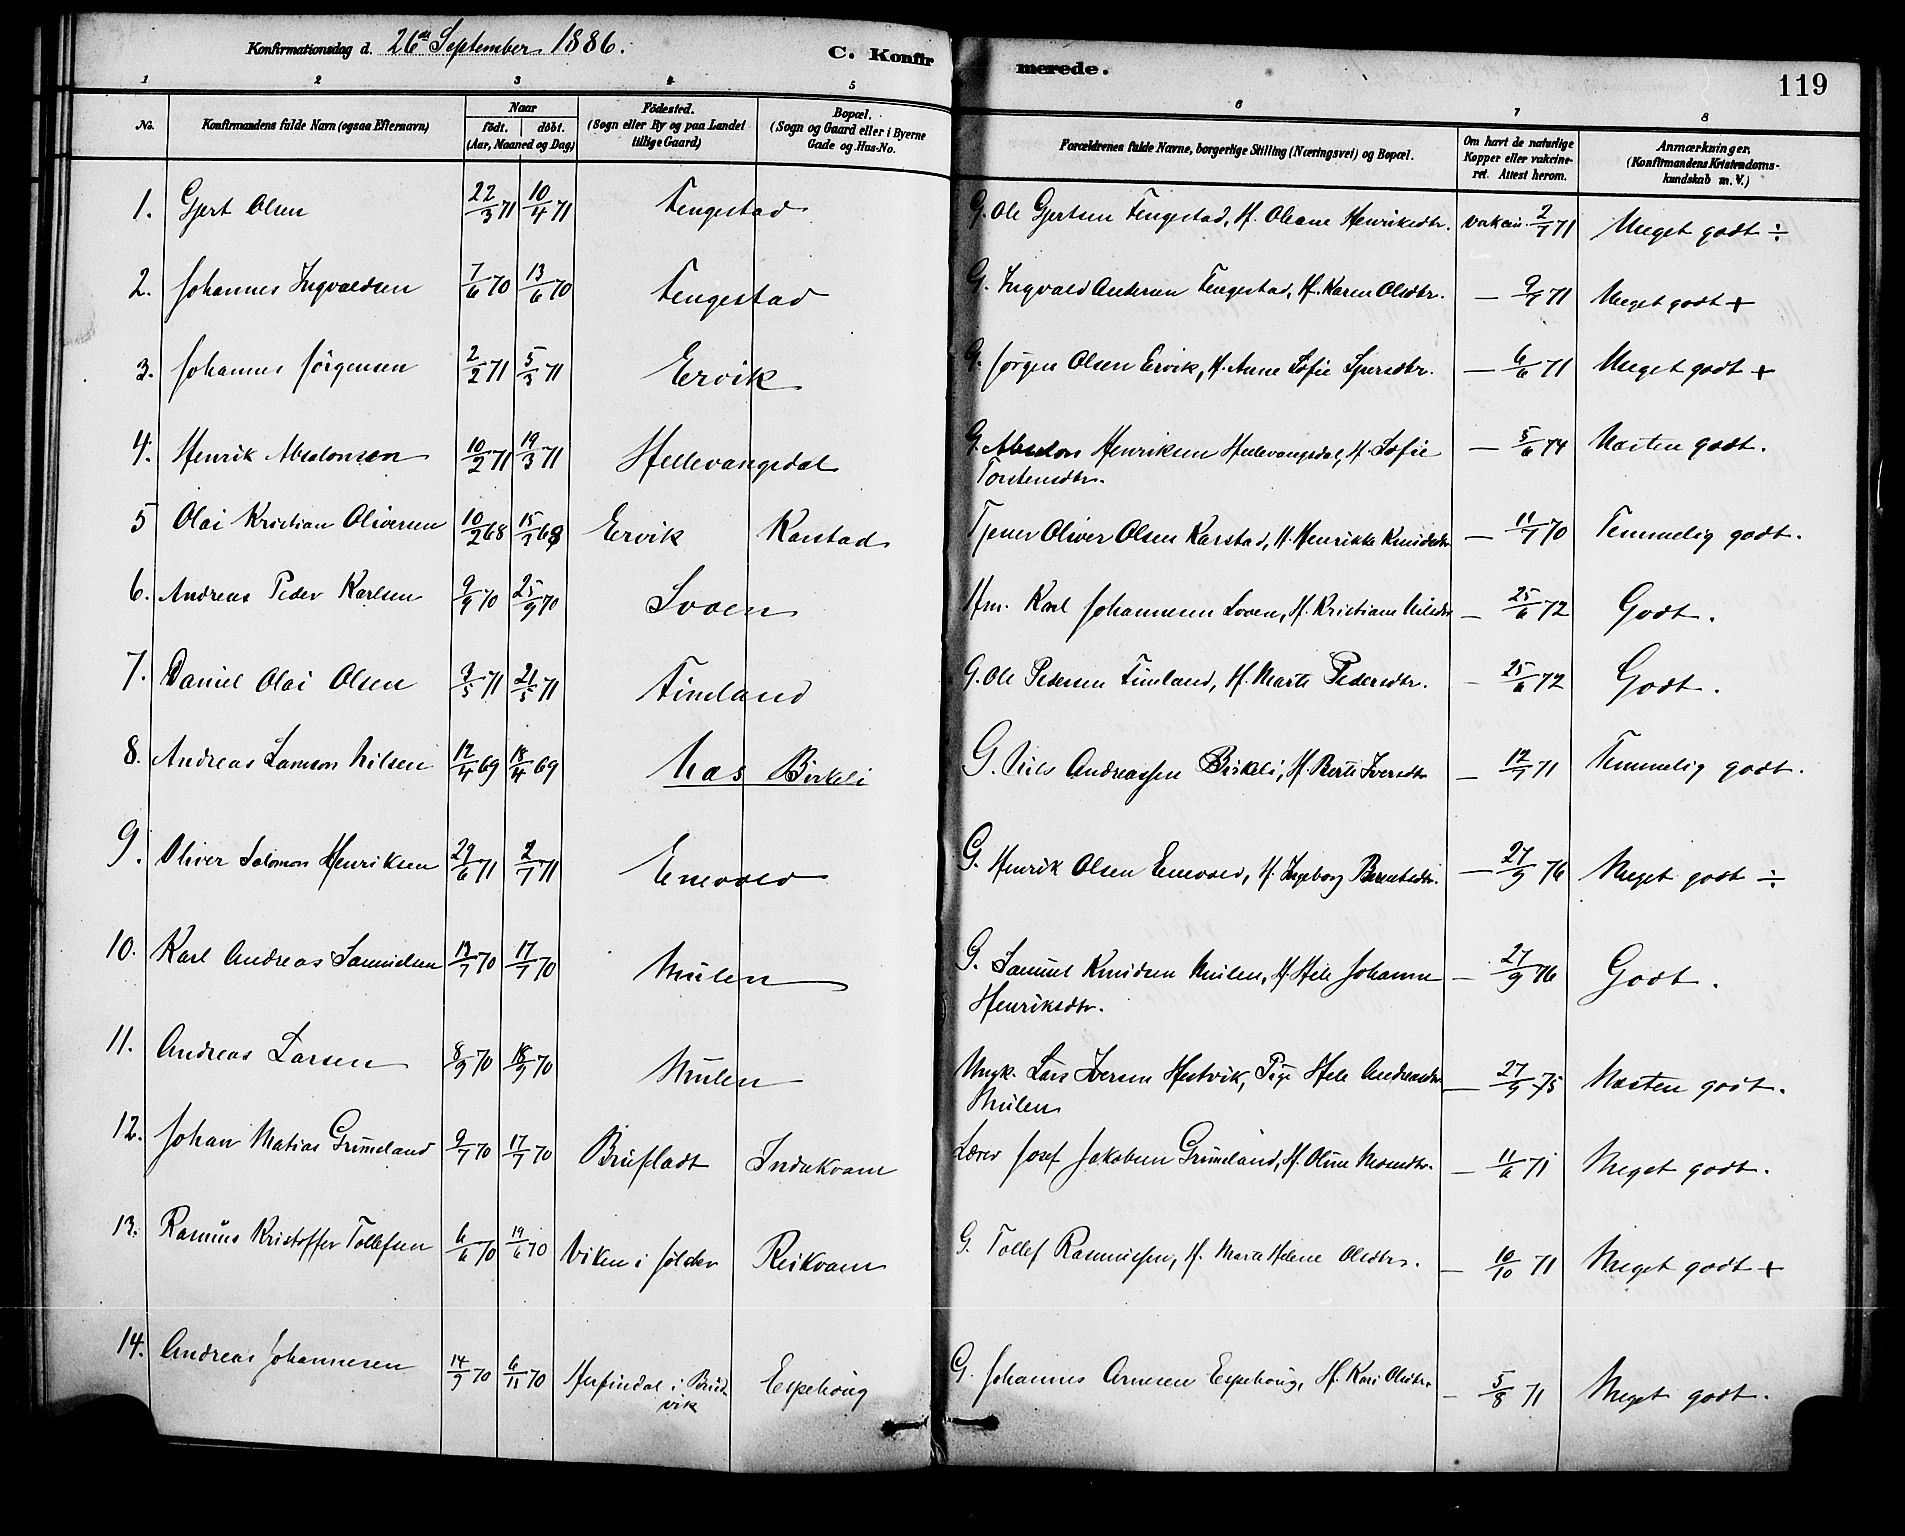 Konfirmationsdag d. 26de September 1886.
C. Konfirmerede.
119
1 2 3 4 5 6 7 8
No. Konfirmandens fulde Navn (ogsaa Efternavn) Naar født. døbt. (Aar, Maaned og Dag) Födested. (Sogn eller By og paa Landet tillige Gaard) Bopæl. (Sogn og Gaard eller i Byerne Gade og Hus-No. Forældrenes fulde Navne, borgerlige Stilling (Næringsvei) og Bopæl. Om havt de naturlige Kopper eller vakcineret. Attest herom. Anmærkninger. (Konfirmandens Kristendomskundskab m. V.)
1. Gjert Olsen 22/3 71 10/4 71 Tengestad G. Ole Gjertsen Tengestad, H. Oleane Henriksdtr. vakcin. 2/7 71 Meget godt ÷
2. Johannes Ingvaldsen 7/6 70 13/6 70 Tengestad G. Ingvald Andersen Tengestad, H. Karen Olsdtr. — 9/7 71 Meget godt +
3. Johannes Jörgensen 2/2 71 5/3 71 Ervik G. Jørgen Olsen Ervik, H. Anne Sofie Sjursdtr. — 6/6 71 Meget godt +
4. Henrik Absalonsen 10/2 71 19/3 71 Hellevangsdal G. Absalon Henriksen Hellevangsdal, H. Sofie
Torstensdtr. — 5/6 74 Næsten godt.
5 Olai Kristian Oliversen 10/2 68 15/3 68 Ervik Karstad Tjener Oliver Olsen Karstad, H. Henrikke Knudsdtr — 11/7 70 Temmelig godt.
6. Andreas Peder Karlsen 9/9 70 25/9 70 Svoen Hm. Karl Johannesen Svoen, H. Kristiane Nilsdtr — 25/6 72 Godt.
7. Daniel Olai Olsen 9/5 71 21/5 71 Fimland G. Ole Pedersen Fimland, H. Marte Pedersdtr. — 25/6 72 Godt.
8. Andreas Samson Nilsen 12/4 69 18/4 69 Naas Birkeli G. Nils Andreassen Birkeli, H. Berte Iversdtr — 12/7 71 Temmelig godt.
9. Oliver Salomon Henriksen 29/6 71 2/7 71 Enevold G. Henrik Olsen Enevold, H. Ingeborg Berentsdtr. — 27/9 76 Meget godt ÷
10. Karl Andreas Samuelsen 13/7 70 17/7 70 Mulen G. Samuel Knudsen Mulen, H. Hele Johanne
Henriksdtr. — 27/9 76 Godt.
11. Andreas Larsen 8/9 70 18/9 70 Mulen Ungk. Lars Iversen Hestvik, Pige Hele Andreasdtr
Mulen — 27/9 75 Næsten godt.
12. Johan Matias Grimeland 9/7 70 17/7 70 Brufladt Indrekvam Lærer Josef Jakobsen Grimeland, H. Oline Monsdtr. — 11/6 71 Meget godt.
13. Rasmus Kristoffer Tollefsen 6/6 70 19/6 70 Viken i Jølster Reikvam G. Tollef Rasmussen, H. Mara Helene Olsdtr. — 10/10 71 Meget godt +
14. Andreas Johannesen 14/9 70 6/11 70 Herfindal i Brud
vik Espehoug G. Johannes Arnesen Espehoug, H. Kari Olsdtr — 5/8 71 Meget godt.